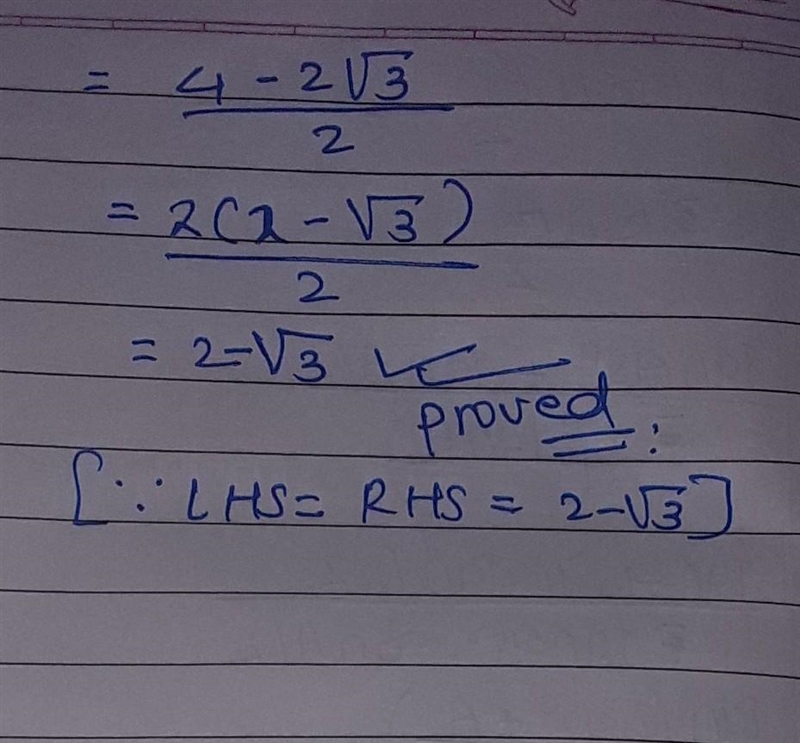 = 4 - 2√3 / 2
= 2(2 - √3) / 2
= 2-√3 ✓
proved :
[∵ LHS = RHS = 2-√3]